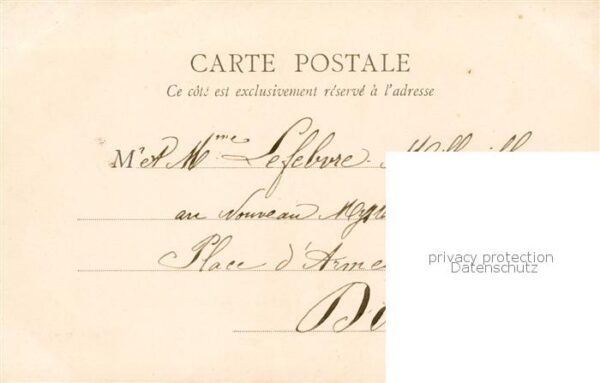 CARTE POSTALE
Ce côté est exclusivement réservé à l'adresse
M r et Mme Lefebvre
au Nouveau
Place d'Arme
privacy protection
Datenschutz